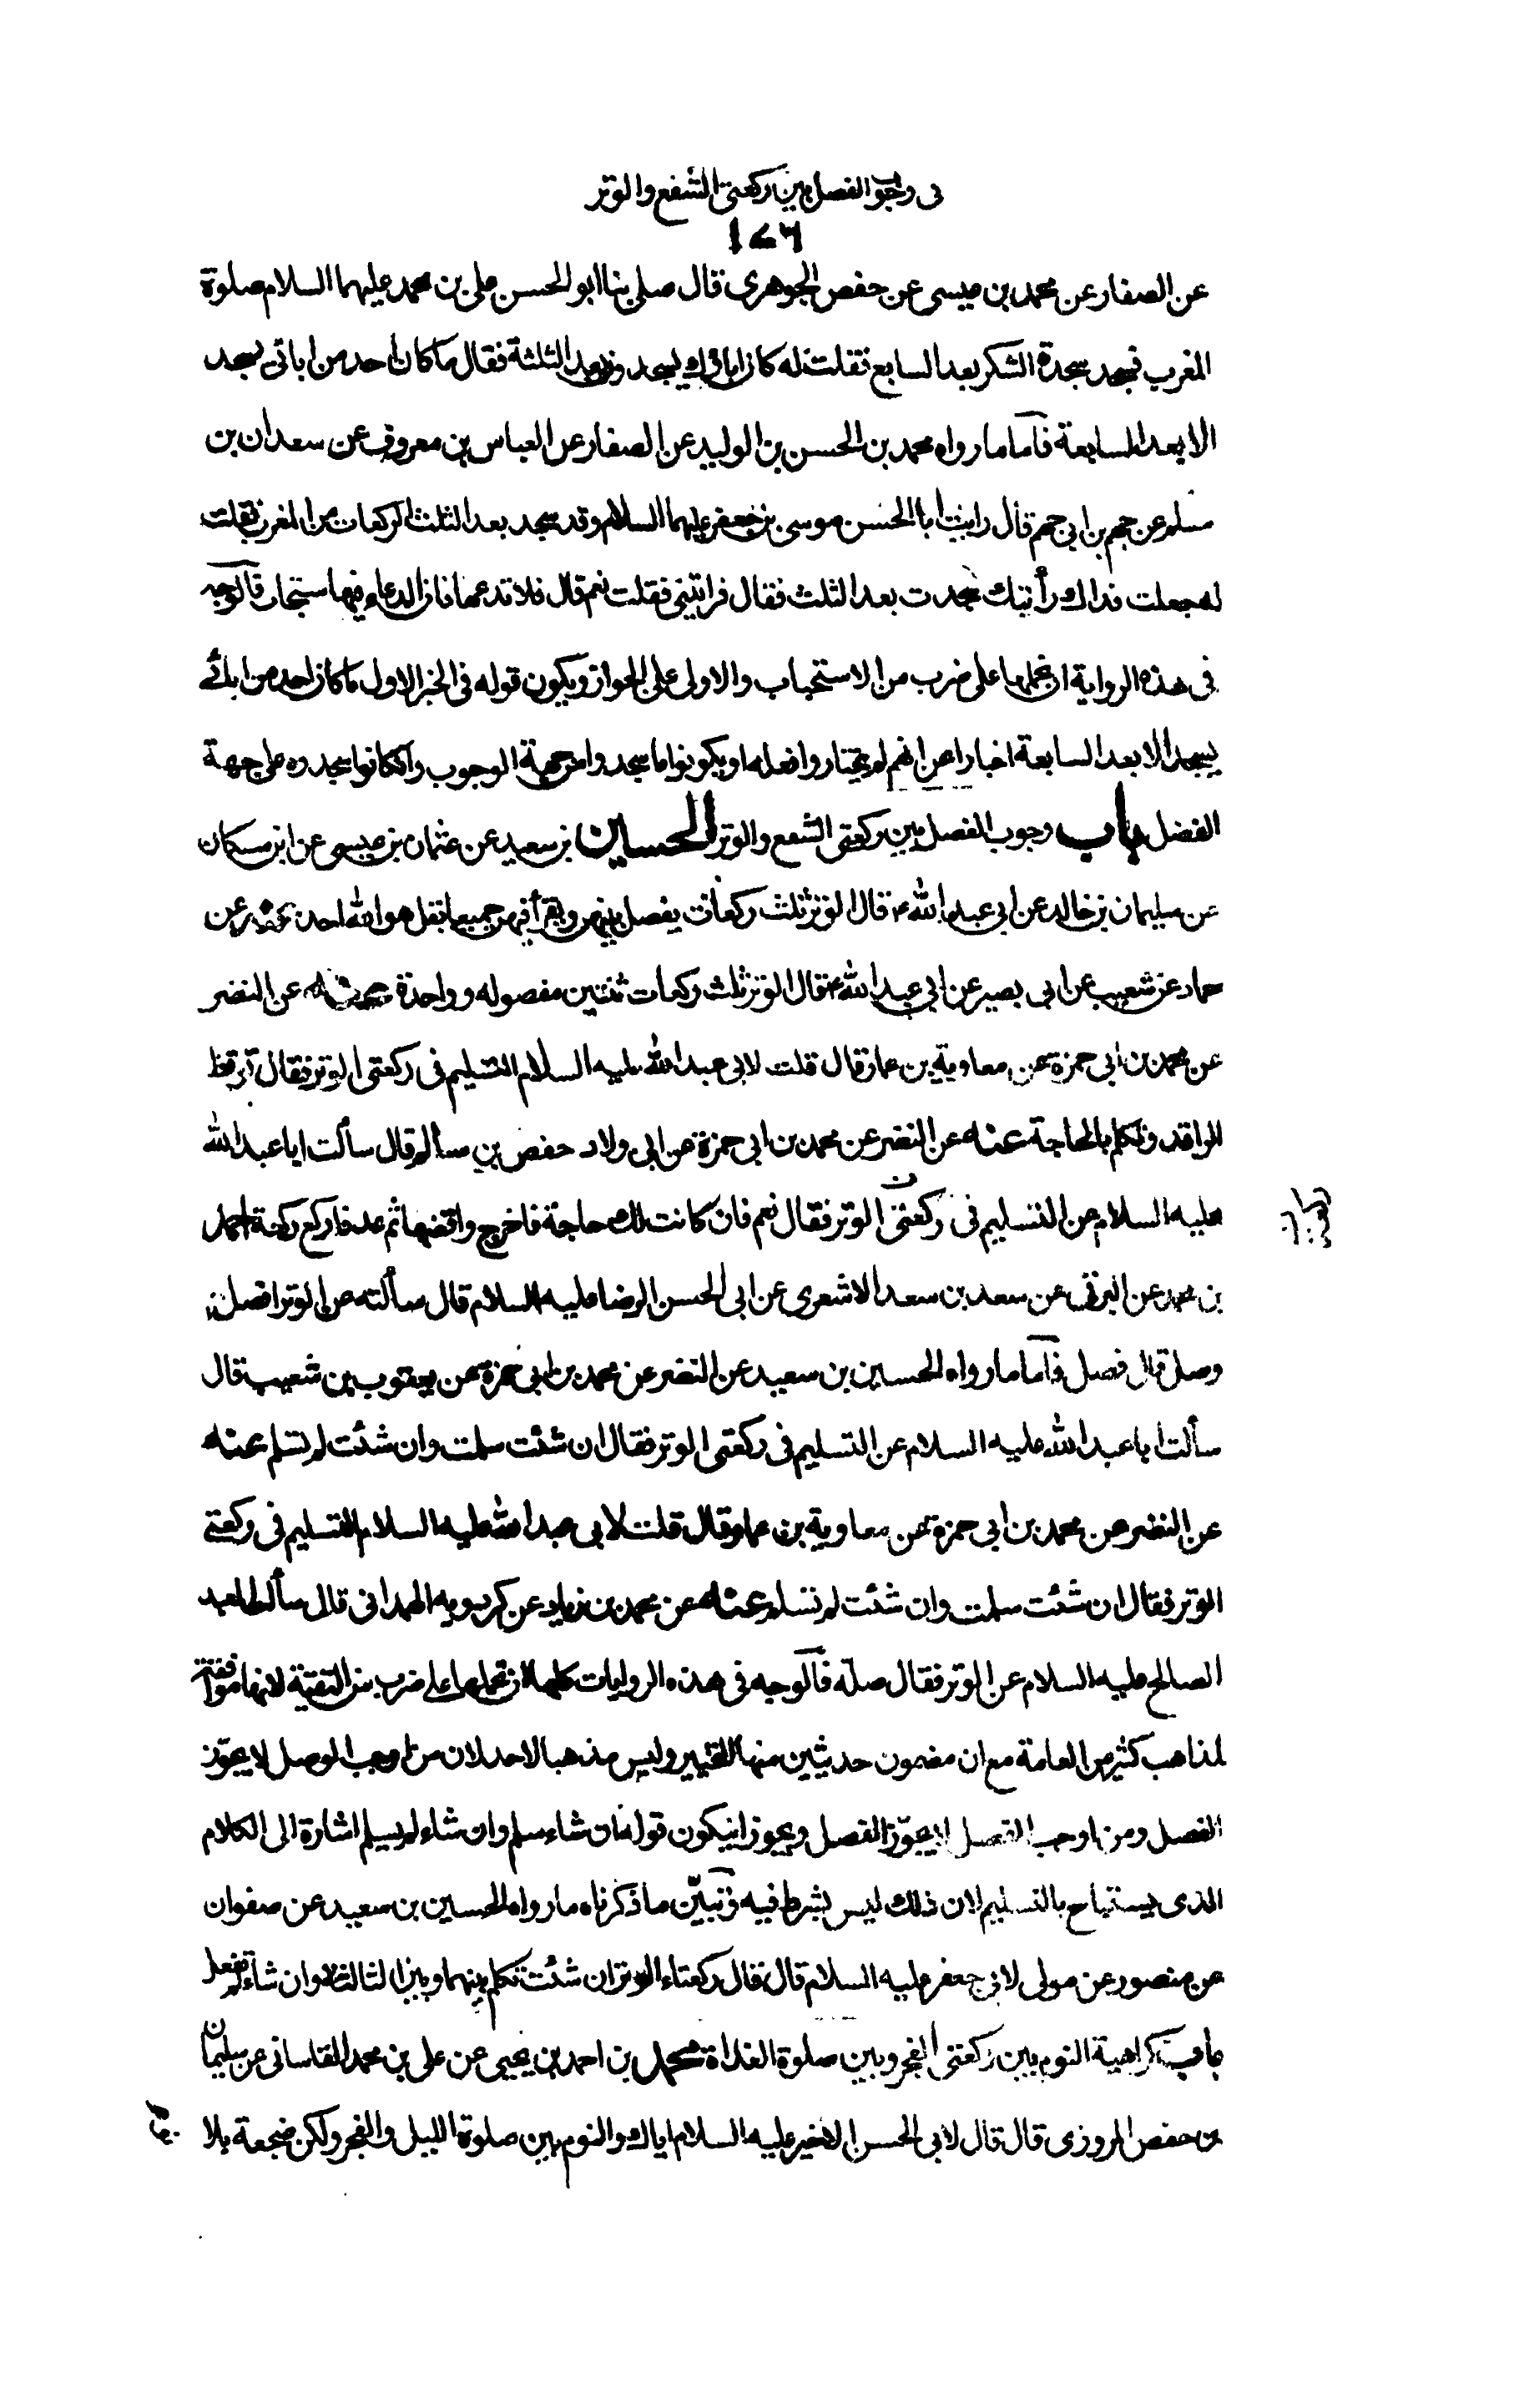 فى وجوب الفصل بين ركعتى الشفع والوتر
١٤٦
عن الصفار عن محمد بن عيسى عن حفص الجوهرى قال صلى بنا ابو الحسن على بن محمد عليهما السلام صلوة
المغرب فسجد سجدة الشكر بعد السابعة فقلت له كان اباؤك يسجدون بعد الثلثة فقال ما كان احد من اباٸى يسجد
الا بعد السابعة فاما ما رواه محمد بن الحسن بن الوليد عن الصفار عن العباس بن معروف عن سعدان بن
مسلم عن جهم بن ابى جهم قال رايت ابا الحسن موسى بن جعفر عليهما السلام وقد سجد بعد الثلث الركعات من المغرب فقلت
له جعلت فداك رأيتك سجدت بعد الثلث فقال فرايتنى فقلت نعم قال فلا تدعها فان الدعاء فيها مستجاب فالوجه
فى هذه الرواية ان نحملها على ضرب من الاستحباب والاولى على الجواز ويكون قوله فى الخبر الاول ما كان احد من ابائى
يسجد الا بعد السابعة اخبارا عن انهم لم يختاروا فعله او يكونوا ما سجدوا من جهة الوجوب وان كانوا سجدوه على جهة
الفضل باب وجوب الفصل بين ركعتى الشفع والوتر الحسين بن سعيد عن عثمان بن عيسى عن ابن مسكان
عن سليمان بن خالد عن ابى عبد الله ع قال الوتر ثلث ركعات يفصل بينهن ويقرأ فيهن جميعا بقل هو الله احد عنه عن
حماد عن شعيب عن ابى بصير عن ابى عبد الله ع قال الوتر ثلث ركعات ثنتين مفصوله وواحدة عنه عن النضر
عن محمد بن ابى حمزة عن معاوية بن عمار قال قلت لابى عبد الله عليه السلام التسليم فى ركعتى الوتر فقال توقظ
الراقد وتكلم بالحاجة عنه عن النضر عن محمد بن ابى حمزة عن ابى ولاد حفص بن سالم قال سألت ابا عبد الله
عليه السلام عن التسليم فى ركعتى الوتر فقال نعم فان كانت لك حاجة فاخرج واقضها ثم عد فاركع ركعة احمد
بن محمد عن البرقى عن سعد بن سعد الاشعرى عن ابى الحسن الرضا عليه السلام قال سألته عن الوتر افصل ام
وصل قال فصل فاما ما رواه الحسين بن سعيد عن النضر عن محمد بن ابى حمزة عن يعقوب بن شعيب قال
سألت ابا عبد الله عليه السلام عن التسليم فى ركعتى الوتر فقال ان شئت سلمت وان شئت لم تسلم عنه
عن النضر عن محمد بن ابى حمزة عن معاوية بن عمار قال قلت لابى عبد الله عليه السلام التسليم فى ركعتى
الوتر فقال ان شئت سلمت وان شئت لم تسلم عنه عن محمد بن زياد عن كردويه الهمدانى قال سألت العبد
الصالح عليه السلام عن الوتر فقال صله فالوجه فى هذه الروايات كلها ان نحملها على ضرب من التقية لانها موافقة
لمذاهب كثير من العامة مع ان مضمون حديثين منها التخيير وليس مذهبا لاحد لان من اوجب الوصل لا يجوّز
الفصل ومن اوجب الفصل لا يجوّز الفصل ويجوز ان يكون قوله ان شاء سلم وان شاء لم يسلم اشارة الى الكلام
الذى يستباح بالتسليم لان ذلك ليس بشرط فيه وتبيّن ما ذكرناه ما رواه الحسين بن سعيد عن صفوان
عن منصور عن مولى لابى جعفر عليه السلام قال قال ركعتاء الوتر ان شئت تكلم بينهما وبين الثالثة وان شاء لم تفعل
باب كراهية النوم بين ركعتى الفجر وبين صلوة الغداة محمد بن احمد بن يحيى عن على بن محمد القاسانى عن سليمان
بن حفص المروزى قال قال لابى الحسن الاخير عليه السلام اياك والنوم بين صلوة الليل والفجر ولكن ضجعة بلا